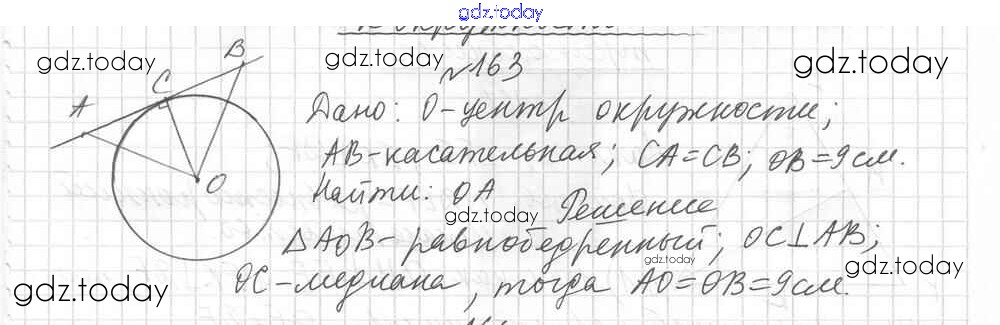 gdz.today
к окружности
gdz.today
gdz.today
№163
A
C
B
O
Дано: O-центр окружности;
AB-касательная; CA=CB; OB=9см.
Найти: OA
gdz.today
Решение
△AOB-равнобедренный; OC⊥AB;
gdz.today
gdz.today
gdz.today
OC-медиана, тогда AO=OB=9см.